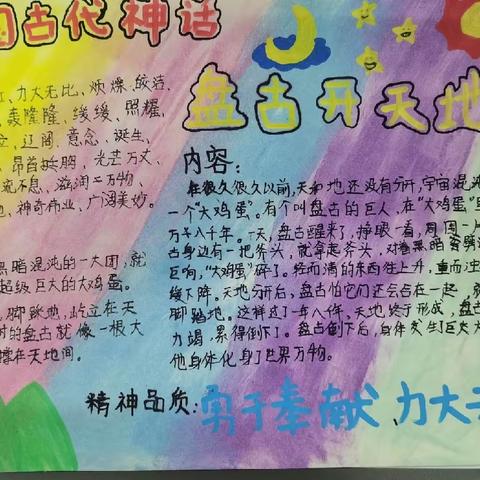 国古代神话
盘古开天地
力大无比、烦燥、皎洁、
轰隆隆、缓缓、照耀、
立、辽阔、意念、诞生、
昂首挺胸、光芒万丈、
流不息、滋润万物、
神奇伟业、广阔美妙。
黑暗混沌的一大团,就
超级巨大的大鸡蛋。
脚踩地,屹立在天
时的盘古就像一根大
撑在天地间。
内容:
在很久很久以前,天和地还没有分开,宇宙混沌
一个"大鸡蛋"。有个叫盘古的巨人,在"大鸡蛋"
万八千年。一天,盘古醒来了,睁眼一看,周围一片
古身边有一把斧头,就拿起斧头,对着黑暗
巨响,"大鸡蛋"碎了。轻而清的东西往上升,重而浊
缓下降。天地分开后,盘古怕它们还会合在一起,就
脚踏地。这样过了一万八千年。天地终于形成,盘古
力竭,累得倒下了。盘古倒下后,身体发生了巨大
他身体化身了世界万物。
精神品质:勇于奉献、力大无